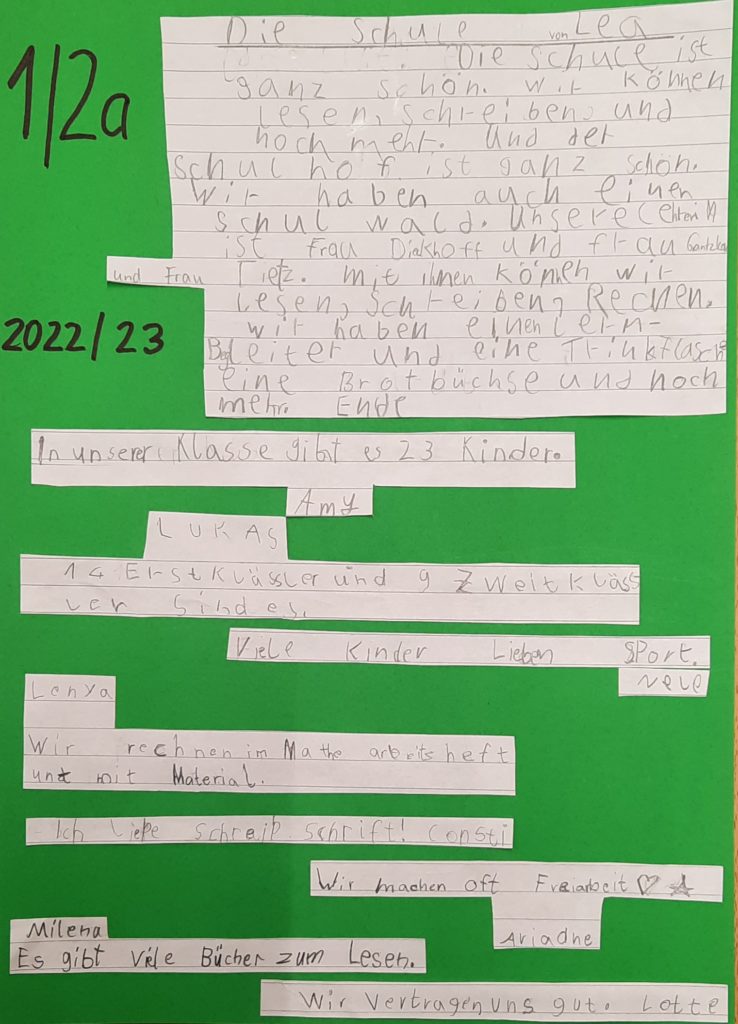 1/2a
Die Schule von Lea
Die schule ist
ganz schön. wir können
Lesen, schreiben, und
noch mehr. Und der
schulhof ist ganz schön.
Wir haben auch einen
schulwald. Unsere Lehrerin
ist Frau Diekhoff und frau
und Frau Tietz. mit ihnen können wir
Lesen, Schreiben, Rechnen.
2022/23
wir haben einen Lern-
Begleiter und eine Trinkflasche
eine Brotbüchse und noch
mehr. Ende
In unserer Klasse gibt es 23 Kinder.
Amy
LUKAS
14 Erstklässler und 9 Zweitkläss
ler sind es.
Viele Kinder Lieben Sport.
Nele
Lenya
Wir rechnen im Mathe arbeitsheft
unt mit Material.
Ich liebe schreib schrift! Consti
Wir machen oft Freiarbeit ♡ ☆
Ariadne
Milena
Es gibt viele Bücher zum Lesen.
Wir Vertragen uns gut. Lotte